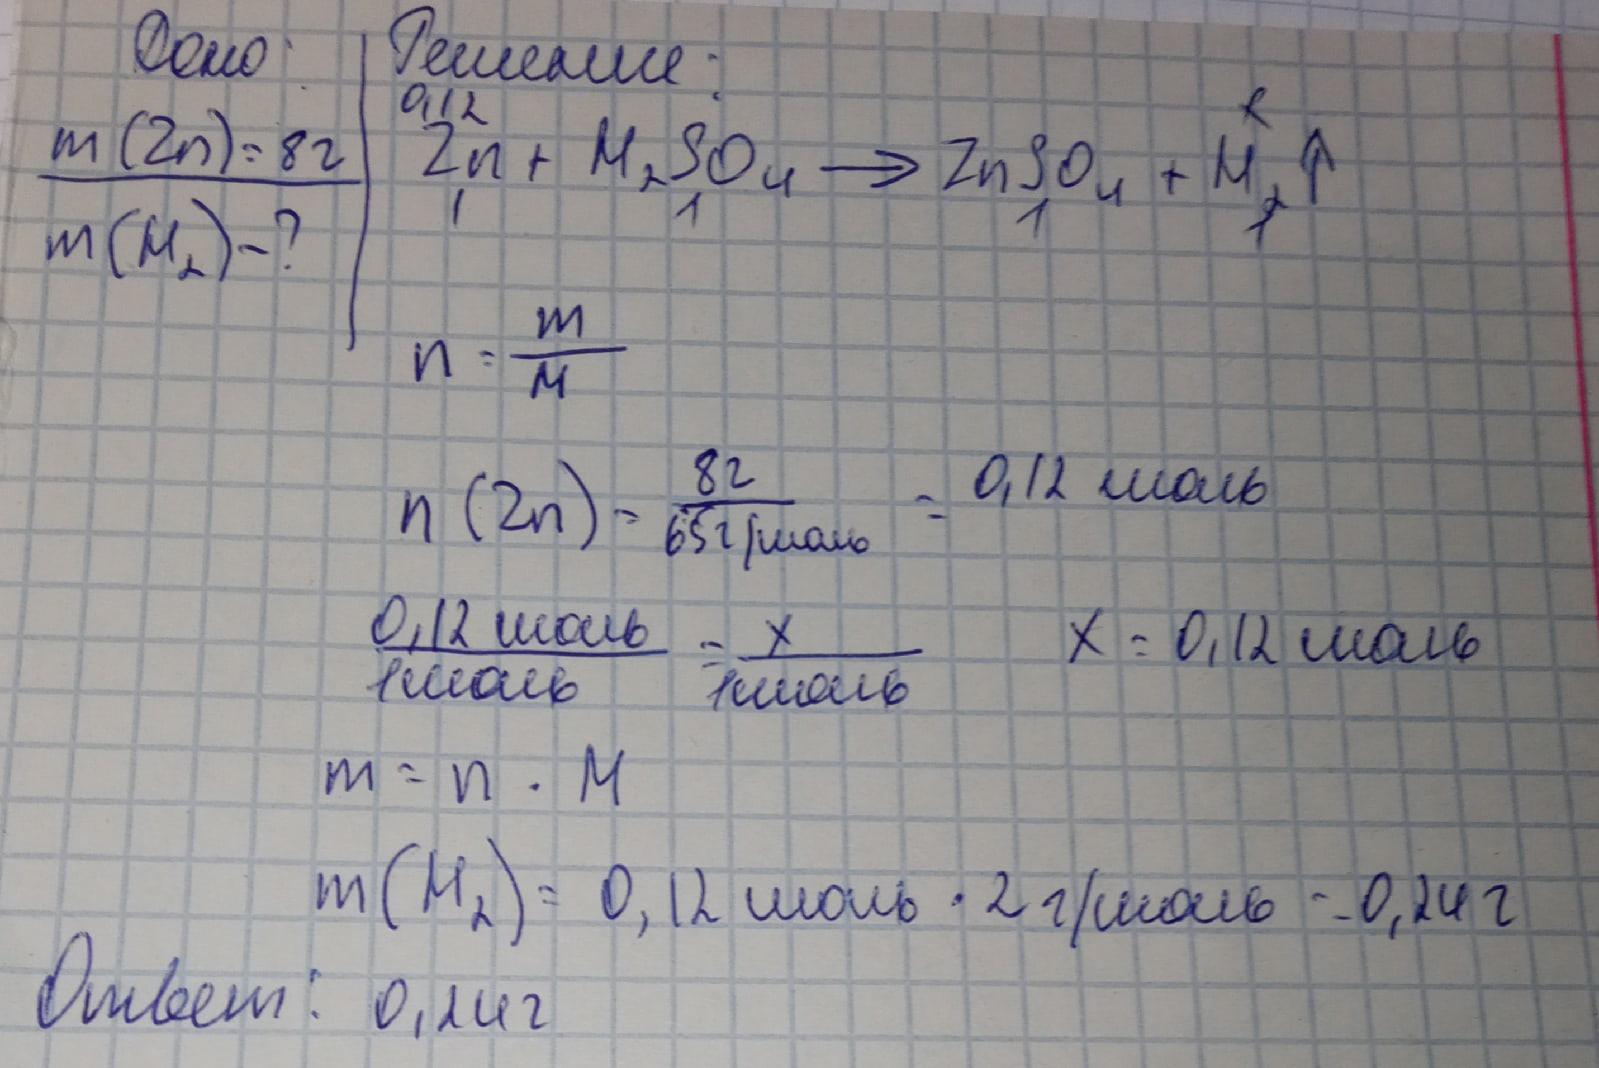 Дано: Решение:
0,12 x
m(Zn)=8г Zn + H₂SO₄ → ZnSO₄ + H₂↑
1 1 1 1
m(H₂)-?
n = m/M
n(Zn) = 8г/65г/моль = 0,12 моль
0,12 моль/1моль = x/1моль x = 0,12 моль
m = n · M
m(H₂) = 0,12 моль · 2 г/моль = 0,24г
Ответ: 0,24г